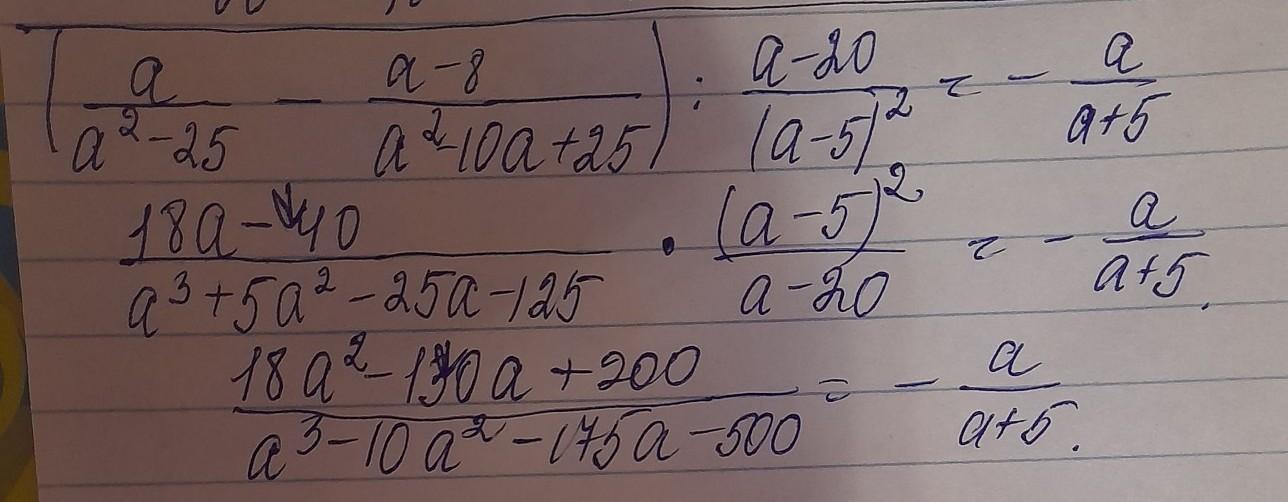 (a/(a²-25) - (a-8)/(a²-10a+25)) : (a-20)/(a-5)² = - a/(a+5)
(18a-40)/(a³+5a²-25a-125) · (a-5)²/(a-20) = - a/(a+5).
(18a²-130a+200)/(a³-10a²-175a-500) = - a/(a+5).